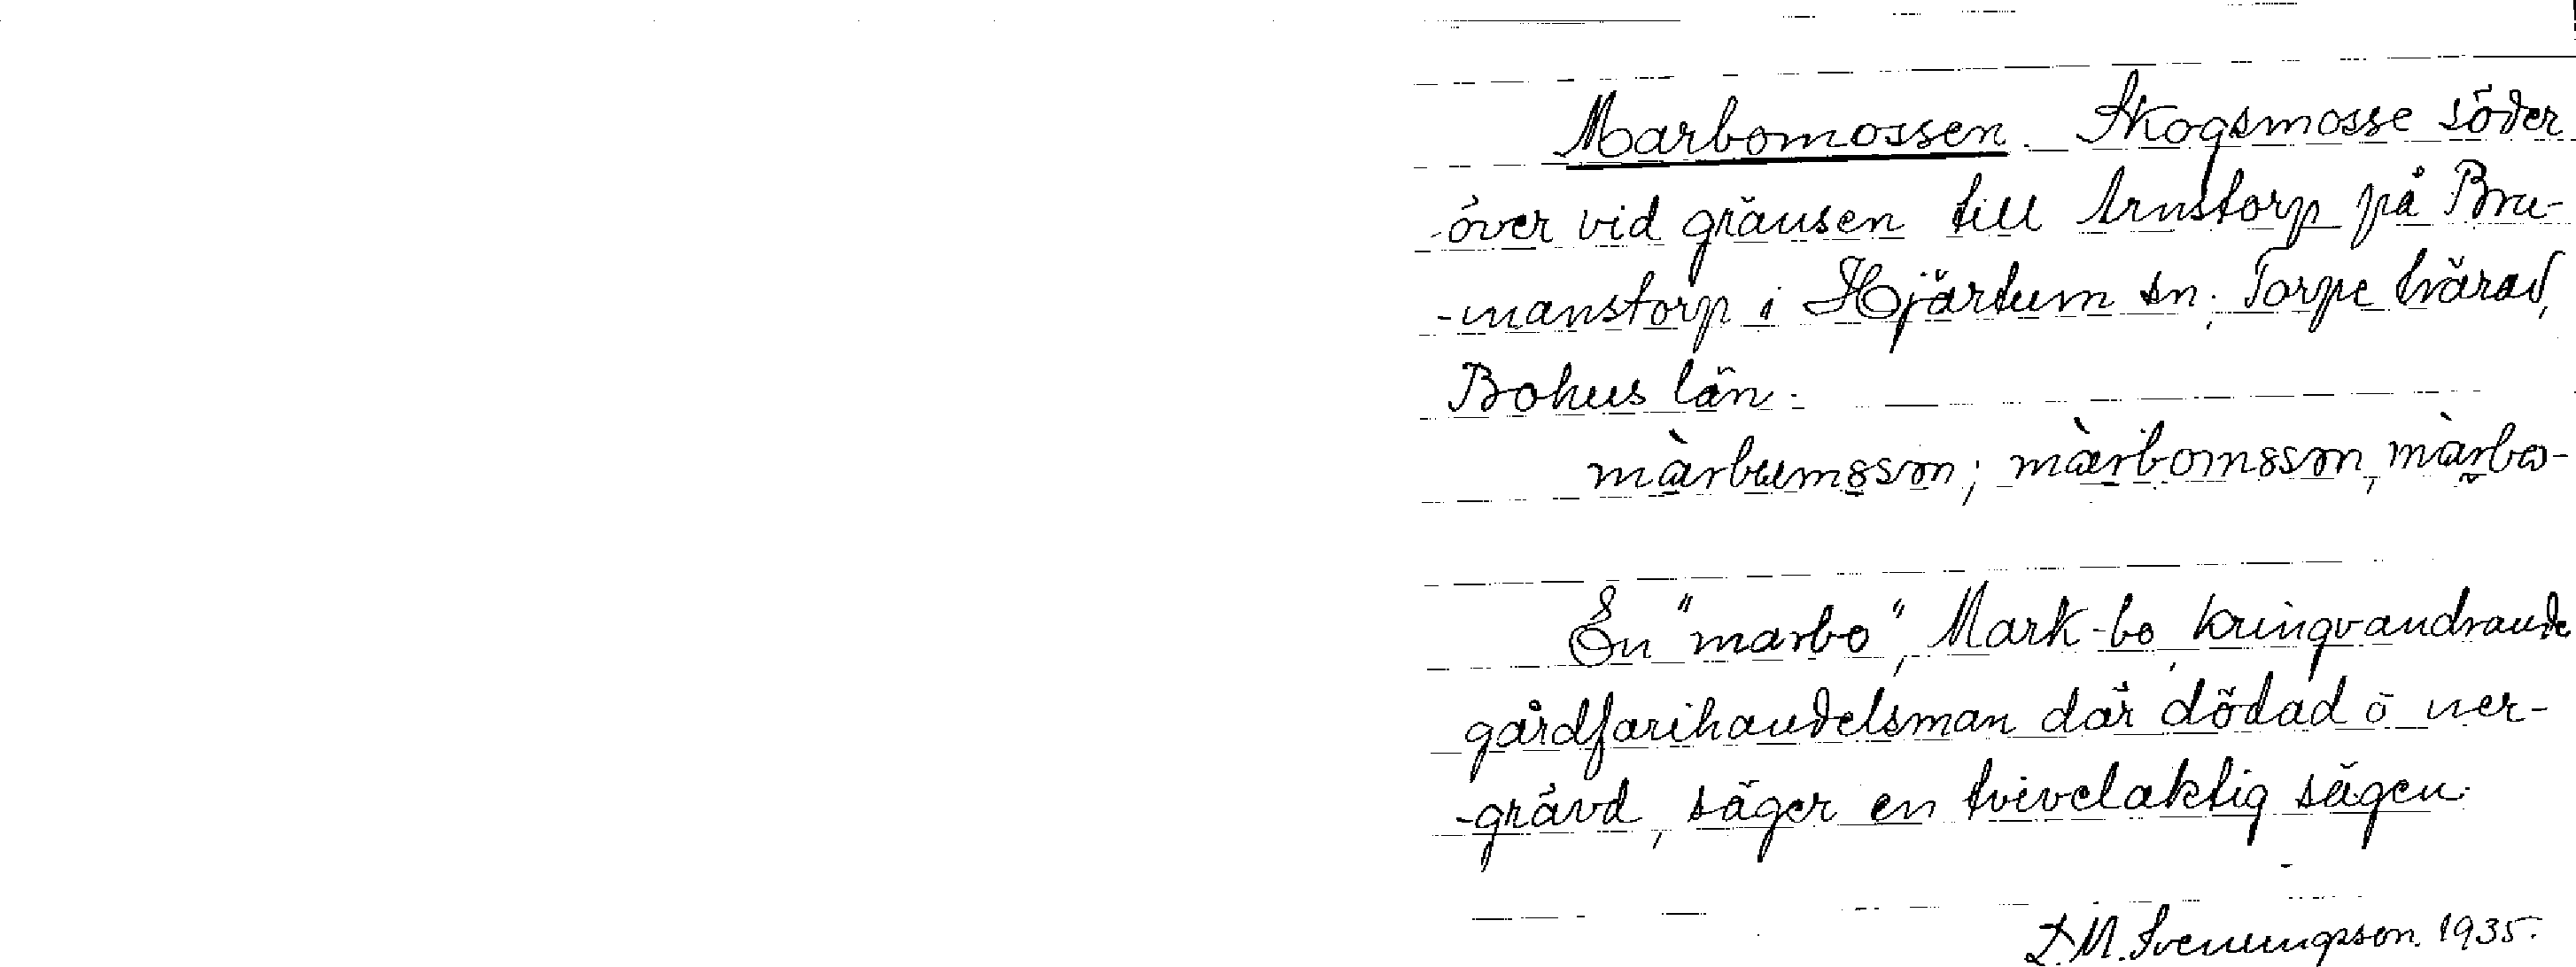 Marbomossen. Skogsmosse söder
över vid gränsen till Arnstorp på Bru-
-manstorp i Hjärtum sn. Torpe härad,
Bohus län.
màrbumsson; màrbomsson, màrbo-
En "marbo", Mark-bo, kringvandrande
gårdfarihandelsman där dödad o ner-
-grävd, säger en tvivelaktig sägen.
L.M. Svenungsson. 1935.